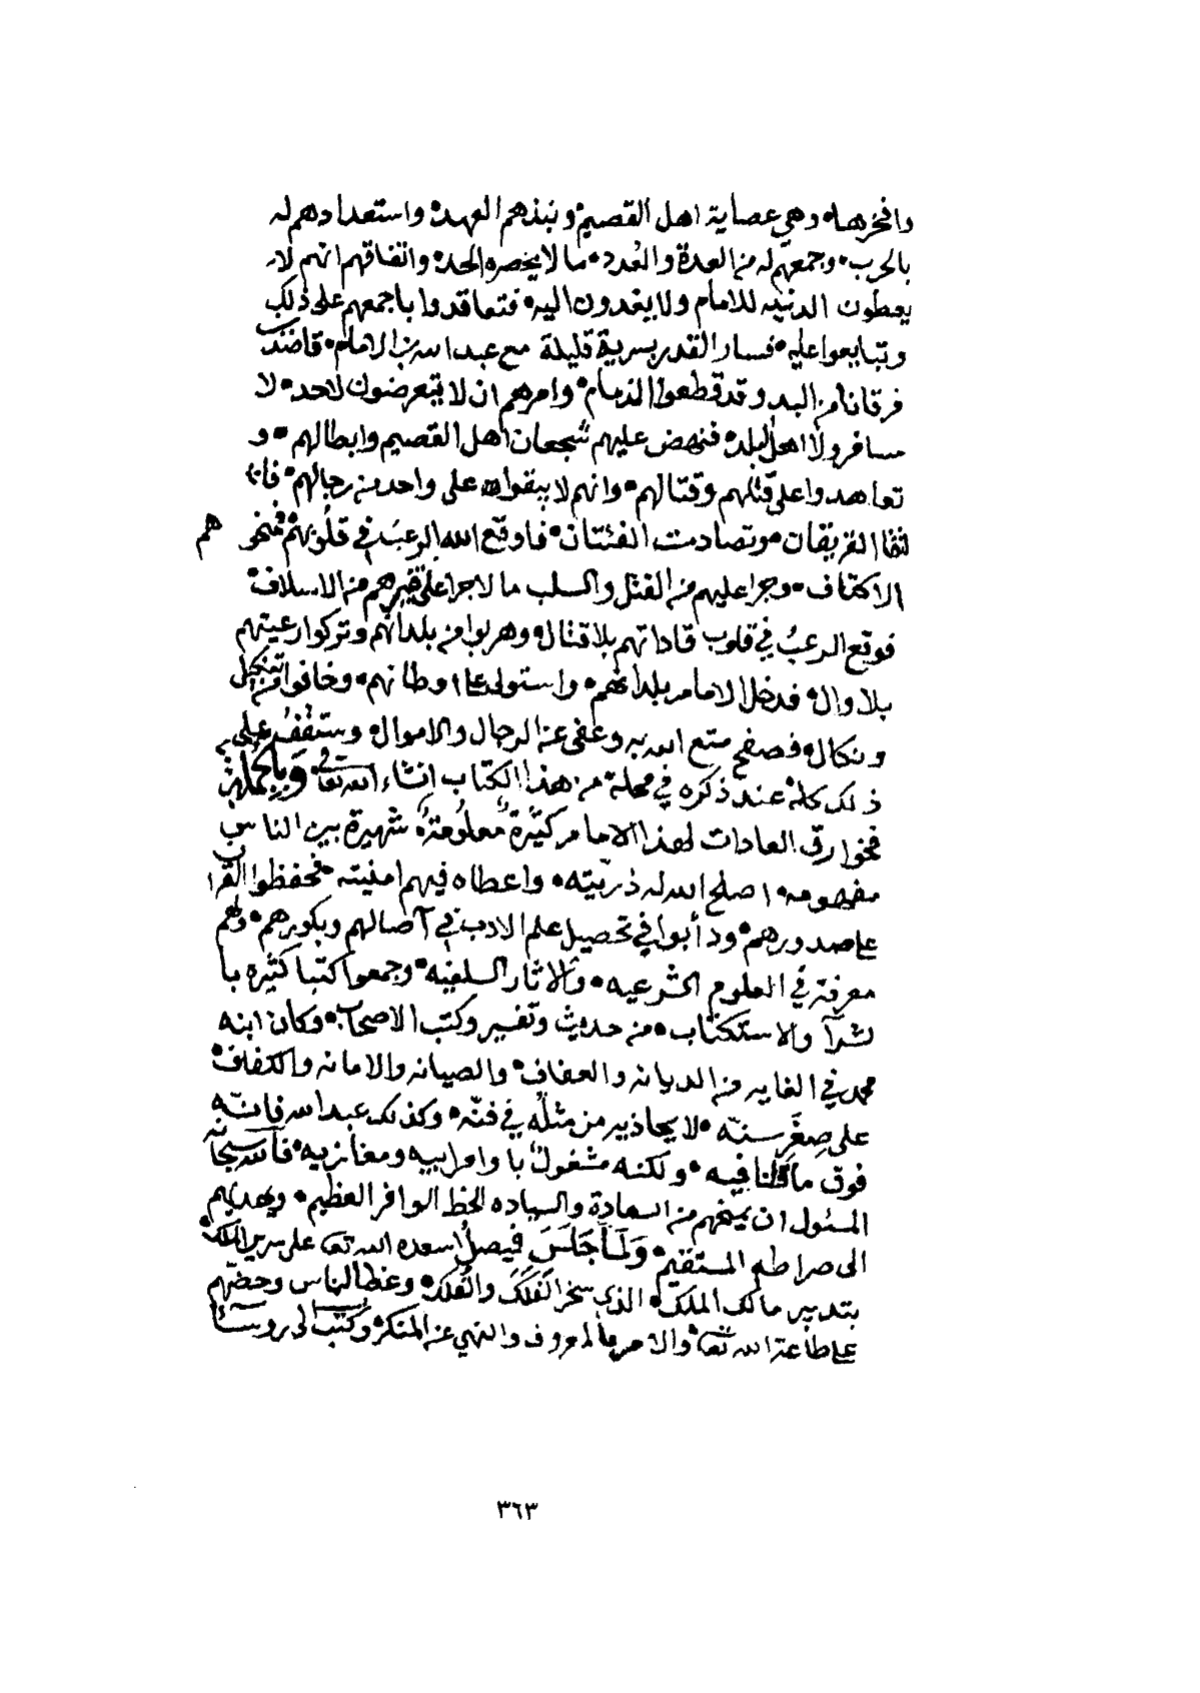 وافخرها٠ وهي عصاية اهل القصيم٠ ونبذهم العهد٠ واستعدادهم له
بالحرب٠ وجمعهم له من العدة والعُدد٠ ما لا يحصره الحد٠ واتفاقهم انهم لا
يعطون الدنيه للامام ولا يفدون اليه٠ فتعاقدوا باجمعهم على ذلك
وتبايعوا عليه٠ فسار القدر بسرية قليلة مع عبد الله بن الامام٠
فرقانا من البدو قد قطعوا الذمام٠ وامرهم ان لا يتعرضون لاحد٠ لا
مسافر ولا اهل البلد٠ فنهض عليهم شجعان اهل القصيم وابطالهم٠ و
تعاهدوا على قتلهم وقتالهم٠ وانهم لا يبقوا على واحد من رجالهم٠ فا
لتقا الفريقان٠ وتصادمت الفئتان٠ فاوقع الله الرعب في قلوبهم٠ فمنحوهم
الاكتاف٠ وجرا عليهم من القتل والسلب ما لا جرا على غيرهم من الاسلاف٠
فوقع الرعبُ في قلوب قاداتهم بلا قتال٠ وهربوا من بلدانهم وتركوا رعيتهم
بلا وال٠ فدخل الامام بلدانهم٠ واستولى على اوطانهم٠ وخافوا من تنكيل
ونكال٠ فصفح متع الله به وعفى عن الرجال والاموال٠ وستقف على
ذلك كله عند ذكره في محله من هذا الكتاب انشاء الله تعالى٠ وبالجملة
فخوارق العادات لهذا الامام كثيرة معلومة٠ شهيرة بين الناس
مفهومه٠ اصلح الله له ذريّته٠ واعطاه فيهم امنيته٠ فحفظوا القرا
على صدورهم٠ ودأبوا في تحصيل علم الادب في آصالهم وبكورهم٠ ولهم
معرفة في العلوم الشرعيه٠ والاثار السلفيه٠ وجمعوا كتبا كثيره با
لشرآ والاستكتاب٠ من حديث وتفسير وكتب الاصحاب٠ وكان ابنه
محمد في الغايه من الديانه والعفاف٠ والصيانه والامانه والكفاف٠
على صِغَر سنّه٠ لا يحاذيه من مثله في فنّه٠ وكذلك عبد الله فانه
فوق ما قلنا فيه٠ ولكنه مشغول باوامر ابيه ومغازيه٠ فالله سبحانه
المسئول ان يمنحهم من السعادة والسياده الحظ الوافر العظيم٠ ويهديهم
الى صراطه المستقيم٠ ولمّا جَلَسَ فيصل اسعده الله تعالى على سرير الملك٠
بتدبير مالك الملك٠ الذي سخر الفَلَكَ والفُلك٠ وعظ الناس وحضّهم
على طاعة الله تعالى٠ والامر بالمعروف والنهي عن المنكر٠ وكتب الى روسا
٣٦٣